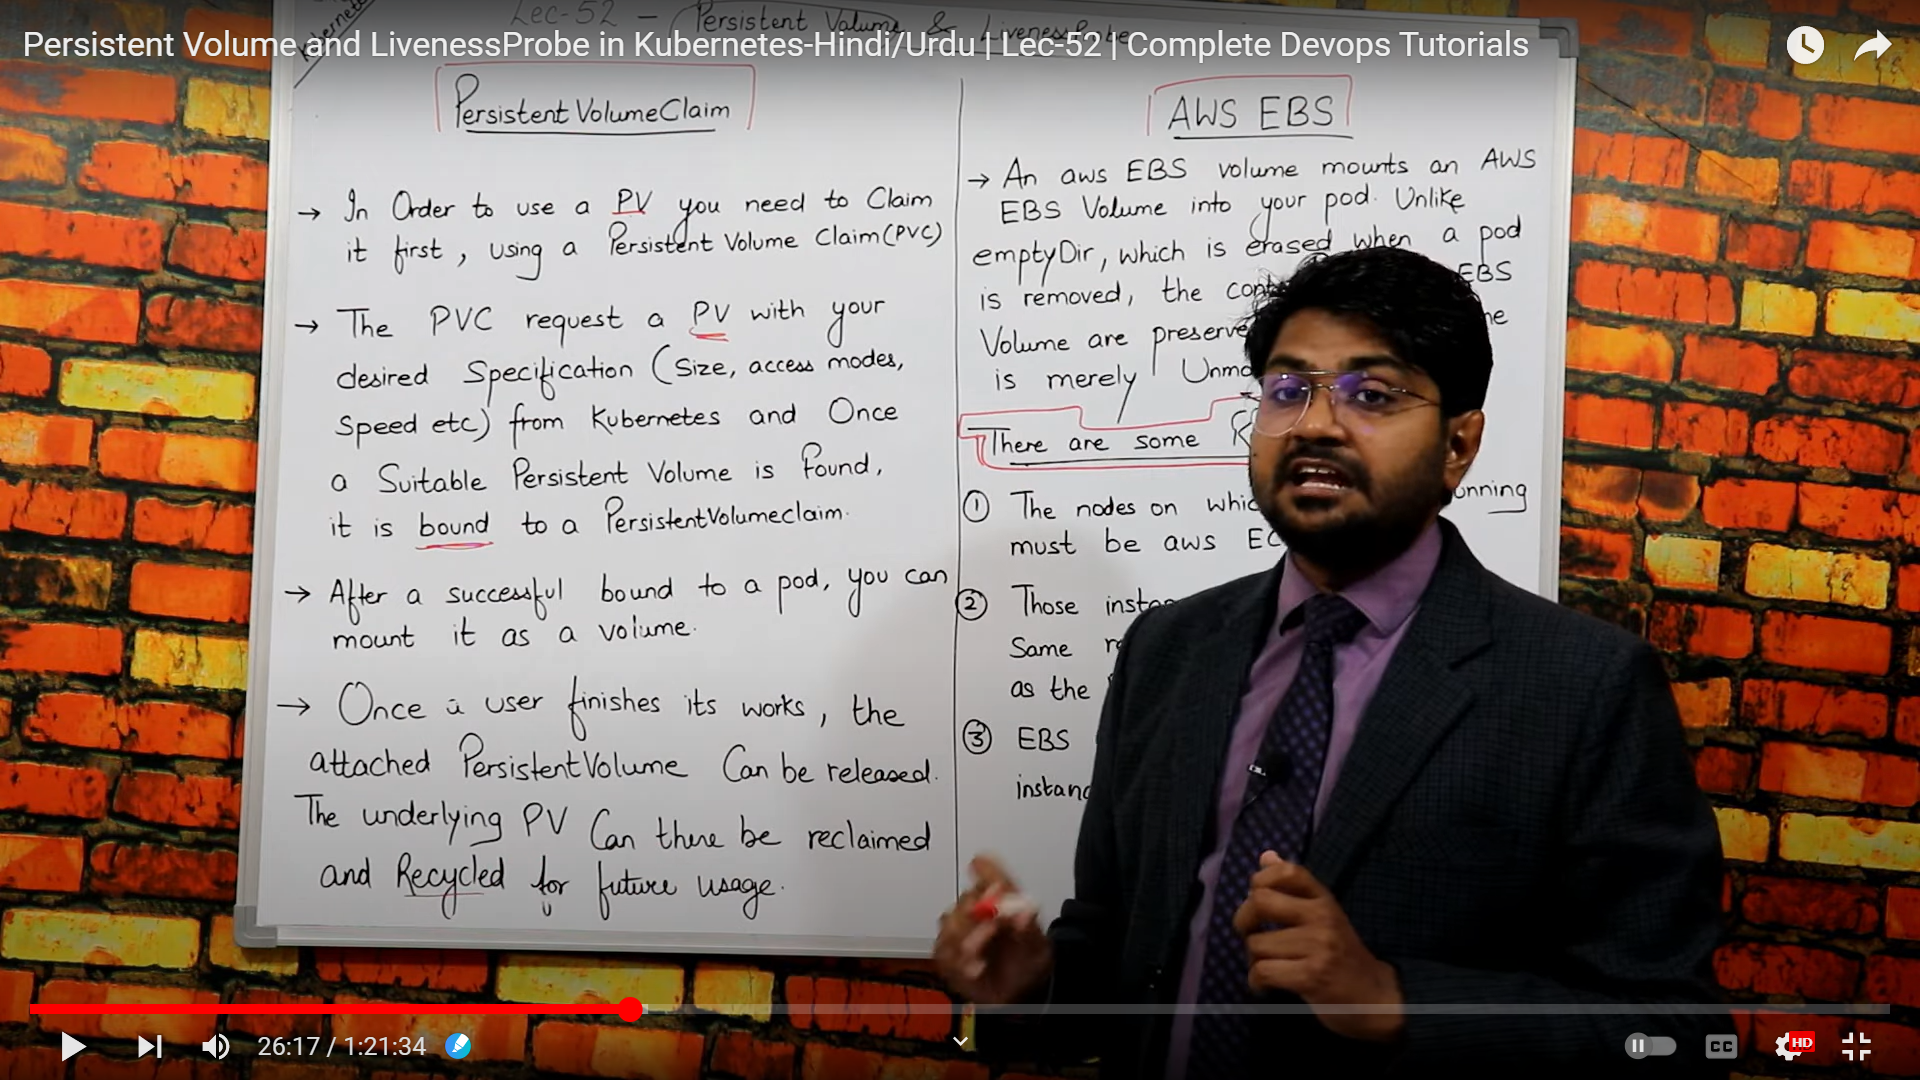 Lec-52 - Persistent Volume & LivenessProbe
Persistent Volume and LivenessProbe in Kubernetes-Hindi/Urdu | Lec-52 | Complete Devops Tutorials
PersistentVolumeClaim
→ In Order to use a PV you need to Claim
it first, using a Persistent Volume Claim(PVC)
→ The PVC request a PV with your
desired Specification (Size, access modes,
Speed etc) from Kubernetes and Once
a Suitable Persistent Volume is found,
it is bound to a PersistentVolumeclaim.
→ After a successful bound to a pod, you can
mount it as a volume.
→ Once a user finishes its works, the
attached PersistentVolume Can be released.
The underlying PV Can then be reclaimed
and Recycled for future usage.
AWS EBS
→ An aws EBS volume mounts an AWS
EBS Volume into your pod. Unlike
emptyDir, which is erased when a pod
is removed, the EBS
Volume are
is merely
There are some
① The nodes on
must be aws
② Those
Same
as the
③ EBS
26:17 / 1:21:34
CC
HD